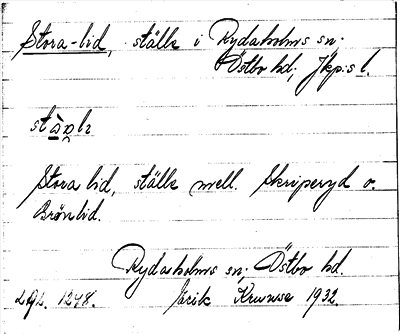 Stora-lid, ställe i Rydaholms sn.
Östbo hd., Jkp:s l.
Stora lid, ställe mell. Skruperyd o.
Brönlid.
Rydaholms sn., Östbo hd.
1248. Erik Kruuse 1932.